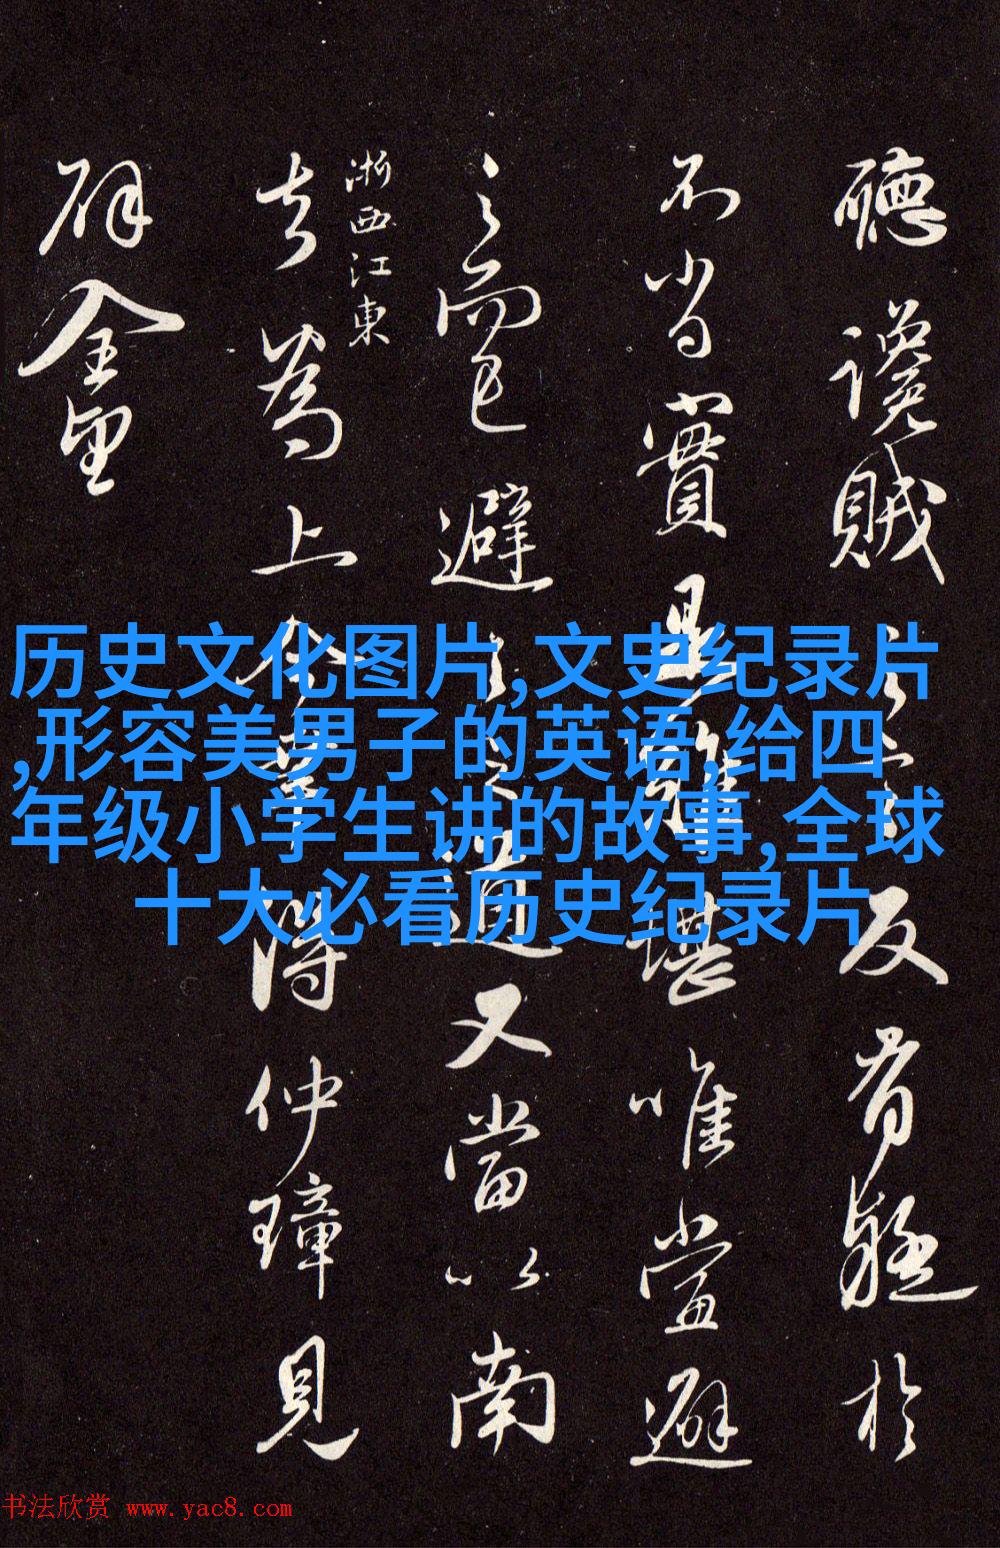 聽讒賊之言反有疑於
不實是難堪唯當避
之而已避之之道又當以南
浙西江東
去為上得仲璋見
历史文化图片,文史纪录片
,形容美男子的英语,给四
年级小学生讲的故事,全球
十大必看历史纪录片
书法欣赏 www.yac8.com